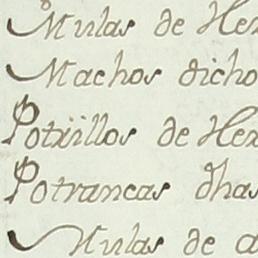 Mulas de Her
Machos dicho
Potrillos de Her
Potrancas dhas
Mulas de a